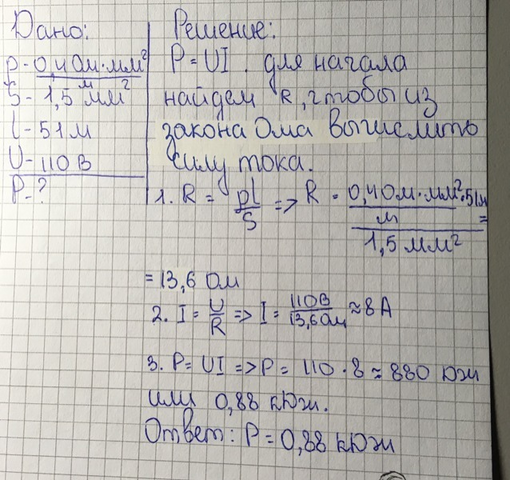 Дано:
ρ - 0,4 Ом·мм²
м
S - 1,5 мм²
l - 51 м
U - 110 В
P - ?
Решение:
P = UI. для начала
найдем R, чтобы из
закона Ома вычислить
силу тока.
1. R = ρl/S => R = 0,4 Ом·мм²·51м / м / 1,5 мм² =
= 13,6 Ом
2. I = U/R => I = 110В/13,6Ом ≈ 8 А
3. P = UI => P = 110 · 8 ≈ 880 Дж
или 0,88 кДж.
Ответ: P = 0,88 кДж